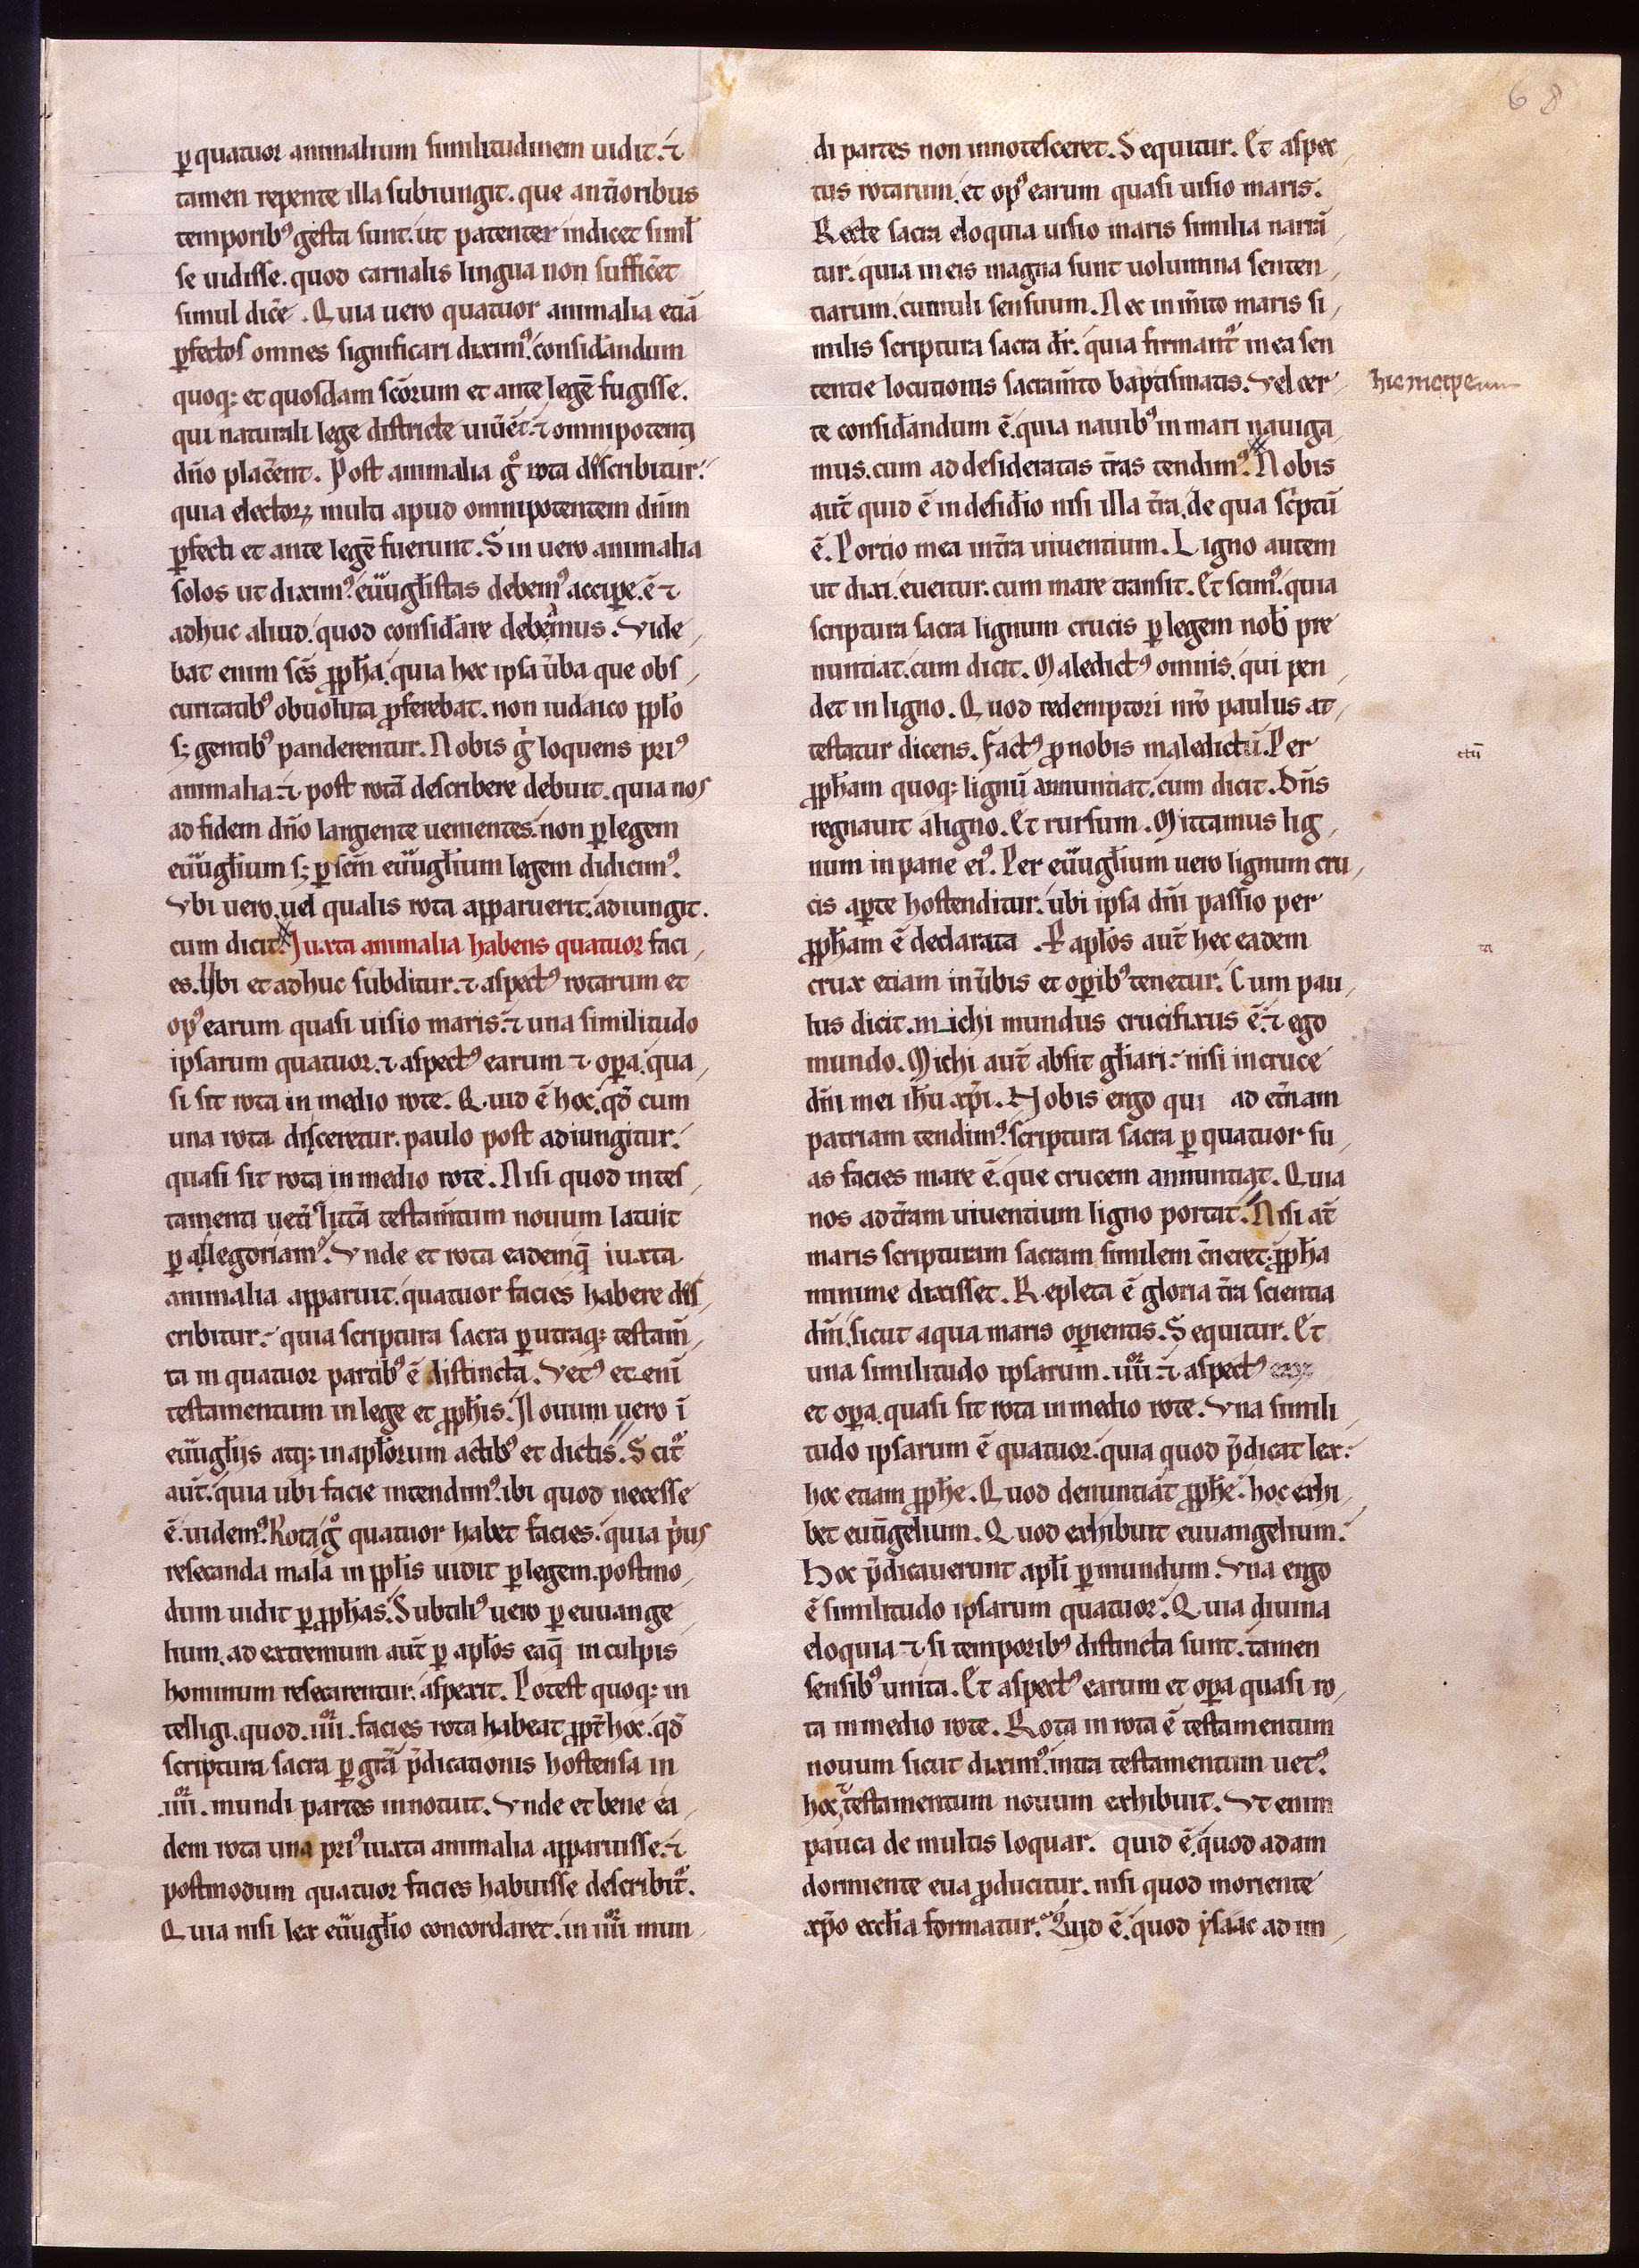 68
ꝑ quatuor animalium similitudinem uidit. ⁊
tamen repente illa subiungit. que anťioribus
temporibꝰ gesta sunt. ut patenter indicet simł
se uidisse. quod carnalis lingua non sufficet̄
simul dicē. Quia uero quatuor animalia etiā
ꝑfectos omnes significari diximꝰ. considandum̄
quoq; et quosdam scōrum et ante legē fugisse.
qui naturali lege districte uiuēt. ⁊ omnipotenti
dño placēnt. Post animalia g̊ rota discribitur.
quia electoꝝ multi apud omnipotentem dñm
ꝑfecti et ante legē fuerunt. Sin uero animalia
solos ut diximꝰ. euuḡłistas debemꝰ accipe. ē ⁊
adhuc aliud. quod considare debemus. Vide
bat enim scs̄ ꝓpħa. quia hec ipsa ūba que obs
curitatibꝰ obuoluta ꝓferebat. non iudaico ppło
s; gentibꝰ panderentur. Nobis g̊ loquens priꝰ
animalia. ⁊ post rotā describere debuit. quia nos
ad fidem dño largiente uenientes. non ꝑ legem
euuḡłium s; ꝑ scm̄ euuḡłium legem didicimꝰ.
Vbi uero. uel qualis rota apparuerit. adiungit.
cum dicit. Iuxta animalia habens quatuor faci
es. Vbi et adhuc subditur. ⁊ aspectꝰ rotarum et
opꝰ earum quasi uisio maris. ⁊ una similitudo
ipsarum quatuor. ⁊ aspectꝰ earum ⁊ opa. qua
si sit rota in medio rote. Quid ē hoc. qđ cum
una rota disceretur. paulo post adiungitur.
quasi sit rota in medio rote. Nisi quod in tes
tamenti uetīs littā testam̄tum nouum latuit
ꝑ allegoriamꝰ. Vnde et rota eademq̄ iuxta
animalia apparuit. quatuor facies habere dis
cribitur. quia scriptura sacra ꝑ utraq; testam̄
ta in quatuor partibꝰ ē distincta. Vetꝰ et eni
testamentum in lege et ꝓpħis. Nouum uero ī
euuḡłijs atq; in apłorum actibꝰ et dictis. Scitᷣ
aut̄. quia ubi facie intendimꝰ. ibi quod necesse
ē. uidemꝰ. Rota g̊ quatuor habet facies. quia pius
resecanda mala in ppłis uidit ꝑ legem. postmo
dum uidit ꝑ ꝓpħas. Subtiliꝰ uero ꝑ euuange
lium. ad extremum aut̄ ꝑ apłos eaq̄ in culpis
hominum resecarentur. aspexit. Potest quoq; in
telligi. quod. iiii. facies rota habeat ꝓpť hoc. qđ
scriptura sacra ꝑ grā p̄dicationis hostensa in
.iiii. mundi partes innotuit. Vnde et bene ea
dem rota una priꝰ iuxta animalia apparuisse. ⁊
postmodum quatuor facies habuisse describitᷣ.
Quia nisi lex euuḡłio concordaret. in iiii mun
di partes non innotesceret. Sequitur. Et aspec
tus rotarum. et opꝰ earum quasi uisio maris.
Recte sacra eloquia uisio maris similia narrā
tur. quia in eis magna sunt uolumina senten
tiarum. cumuli sensuum. Nec in im̄ito maris si
milis scriptura sacra dr̄. quia firmantᷣ in ea sen
tentie locutionis sacram̄to baptismatis. Vel cer
te considandum̄ ē. quia nauibꝰ in mari nauiga
mus. cum ad desideratas tr̄as tendimꝰ. Nobis
aut̄ quid ē in desidio nisi illa tr̄a. de qua scp̄tū
ē. Portio mea in tr̄a uiuentium. Ligno autem
ut dixi. eueitur. cum mare transit. Et scimꝰ. quia
scriptura sacra lignum crucis ꝑ legem nob̄ pre
nuntiat. cum dicit. Maledictꝰ omnis. qui pen
det in ligno. Quod redemptori nr̄o paulus at
testatur dicens. Factꝰ ꝓ nobis maledictū. Per
ꝓpħam quoq; lignū annuntiat. cum dicit. Dñs
regnauit a ligno. Et rursum. Mittamus lig
num in pane eiꝰ. Per euuḡłium uero lignum cru
cis aꝑte hostenditur. ubi ipsa dñi passio per
ꝓpħam ē declarata. P apłos aut̄ hec eadem
crux etiam in ūbis et oꝑibꝰ tenetur. Cum pau
lus dicit. michi mundus crucifixus ē. ⁊ ego
mundo. Michi aut̄ absit głiari. nisi in cruce
dñi mei iħu xp̄i. Nobis ergo qui ad etn̄am
patriam tendimꝰ. scriptura sacra ꝑ quatuor su
as facies mare ē. que crucem annuntiat. Quia
nos ad tr̄am uiuentium ligno portat. Nisi at̄
maris scripturam sacram similem c̄neret. ꝓpħa
minime dixisset. Repleta ē gloria tr̄a scientia
dñi. sicut aqua maris oꝑientis. Sequitur. Et
una similitudo ipsarum. iiii. ⁊ aspectꝰ
et oꝑa. quasi sit rota in medio rote. Vna simili
tudo ipsarum ē quatuor. quia quod p̄dicat lex.
hoc etiam ꝓpħe. Quod denuntiāt ꝓpħe. hoc exhi
bet euūgelium. Quod exhibuit euuangelium.
hoc p̄dicauerunt apłi ꝑ mundum. Vna ergo
ē similitudo ipsarum quatuor. Quia diuina
eloquia ⁊ si temporibꝰ distincta sunt. tamen
sensibꝰ unita. Et aspectꝰ earum et oꝑa quasi ro
ta in medio rote. Rota in rota ē testamentum
nouum sicut diximꝰ. intra testamentum uetꝰ.
hoc testamentum nouum exhibuit. Vt enim
pauca de multis loquar. quid ē. quod adam
dormiente eua ꝓducitur. nisi quod moriente
xp̄o eccłia formatur. Quid ē. quod ysaac ad im
hic incipe
ctū
ta